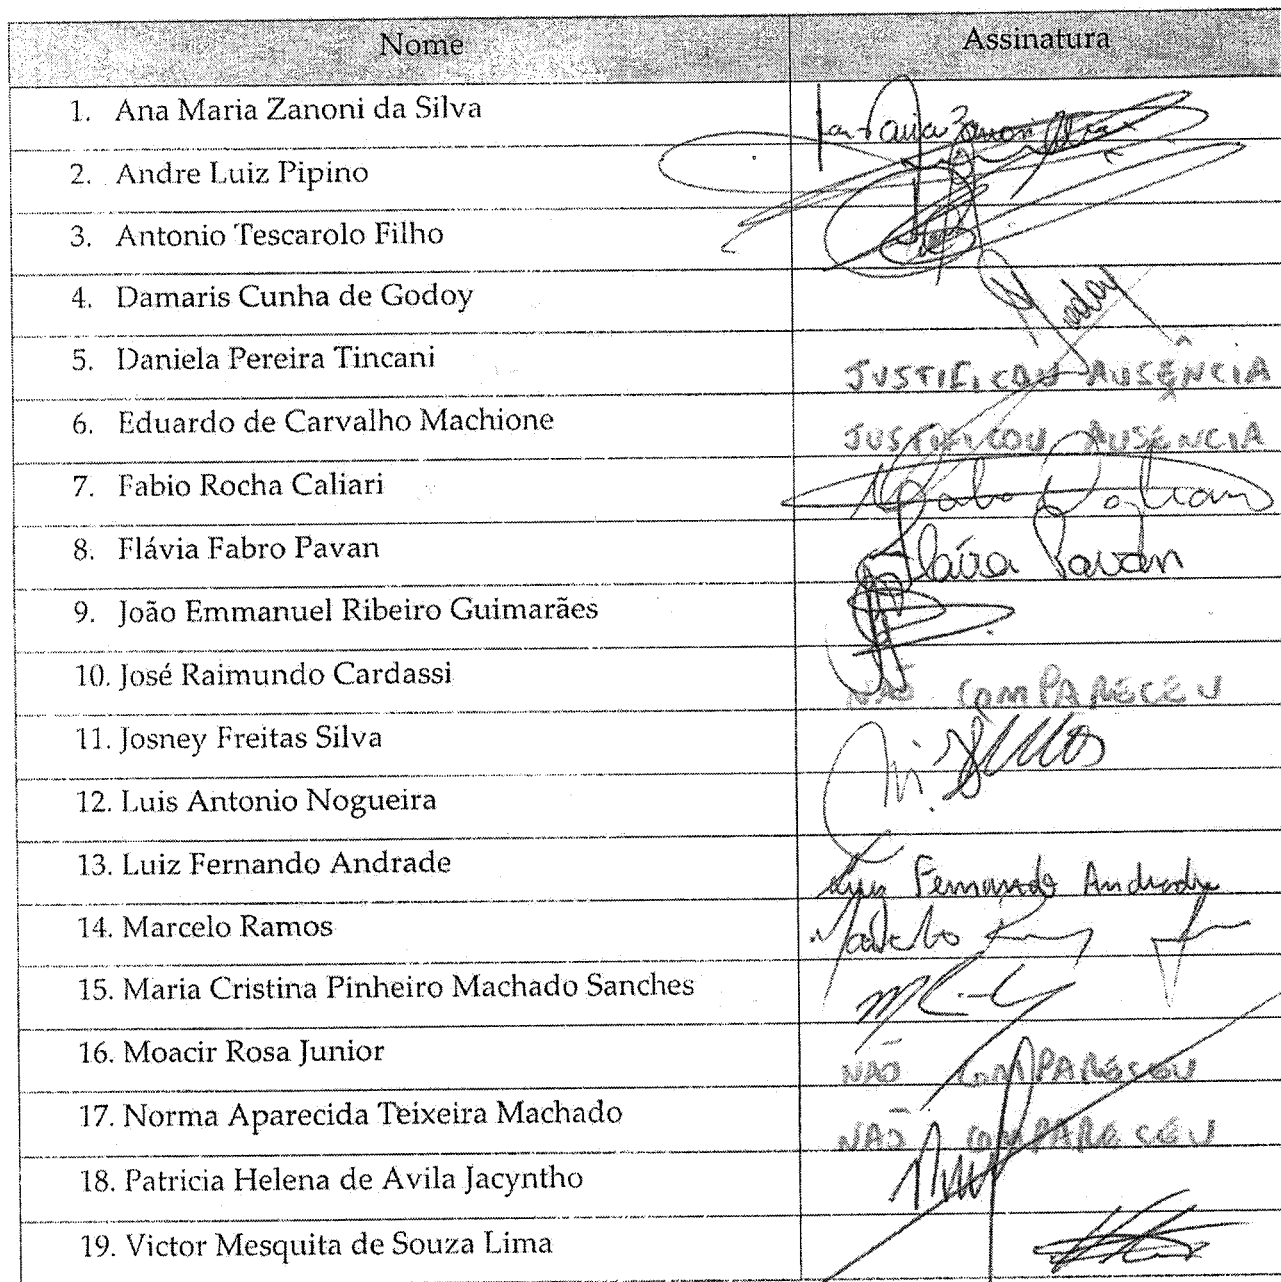 Nome Assinatura
1. Ana Maria Zanoni da Silva
2. Andre Luiz Pipino
3. Antonio Tescarolo Filho
4. Damaris Cunha de Godoy
5. Daniela Pereira Tincani JUSTIFICOU AUSÊNCIA
6. Eduardo de Carvalho Machione JUSTIFICOU AUSENCIA
7. Fabio Rocha Caliari
8. Flávia Fabro Pavan Flávia Pavan
9. João Emmanuel Ribeiro Guimarães
10. José Raimundo Cardassi NÃO COMPARECEU
11. Josney Freitas Silva
12. Luis Antonio Nogueira
13. Luiz Fernando Andrade Luiz Fernando Andrade
14. Marcelo Ramos Marcelo
15. Maria Cristina Pinheiro Machado Sanches
16. Moacir Rosa Junior NÃO COMPARECEU
17. Norma Aparecida Teixeira Machado NÃO COMPARECEU
18. Patricia Helena de Avila Jacyntho
19. Victor Mesquita de Souza Lima